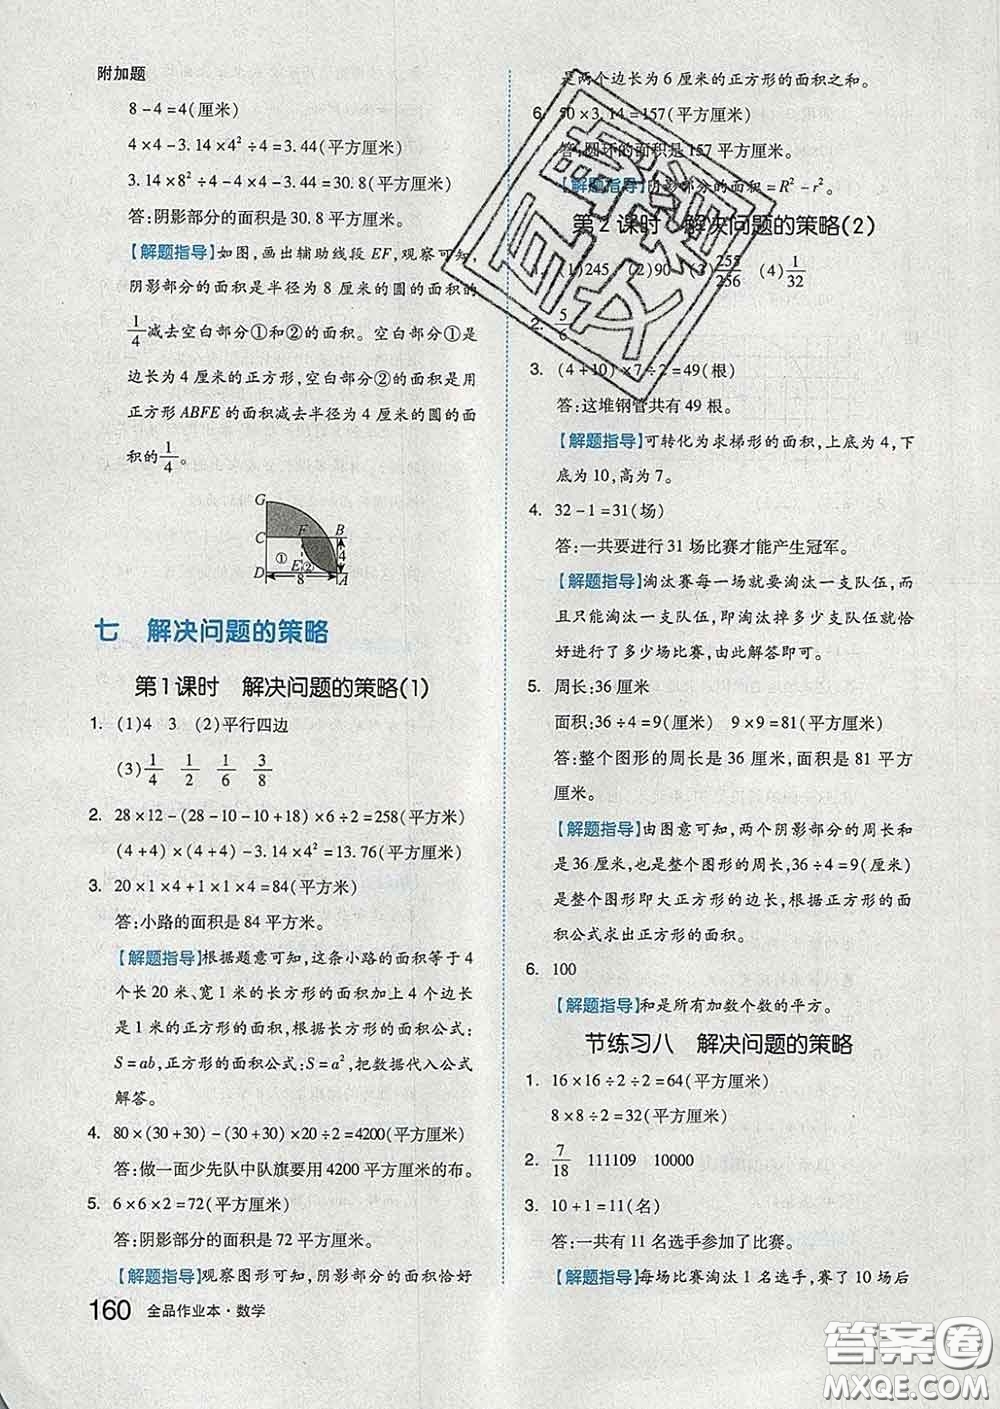 附加题
8-4=4(厘米)
4×4-3.14×4²÷4=3.44(平方厘米)
3.14×8²÷4-4×4-3.44=30.8(平方厘米)
答:阴影部分的面积是30.8平方厘米。
【解题指导】如图,画出辅助线段EF,观察可知,
阴影部分的面积是半径为8厘米的圆的面积的
1/4减去空白部分①和②的面积。空白部分①是
边长为4厘米的正方形,空白部分②的面积是用
正方形ABFE的面积减去半径为4厘米的圆的面
积的1/4。
G
C F B
① 4
D E ② A
8
七 解决问题的策略
第1课时 解决问题的策略(1)
1. (1)4 3 (2)平行四边
(3)1/4 1/2 1/6 3/8
2. 28×12-(28-10-10+18)×6÷2=258(平方米)
(4+4)×(4+4)-3.14×4²=13.76(平方厘米)
3. 20×1×4+1×1×4=84(平方米)
答:小路的面积是84平方米。
【解题指导】根据题意可知,这条小路的面积等于4
个长20米、宽1米的长方形的面积加上4个边长
是1米的正方形的面积,根据长方形的面积公式:
S=ab,正方形的面积公式:S=a²,把数据代入公式
解答。
4. 80×(30+30)-(30+30)×20÷2=4200(平方厘米)
答:做一面少先队中队旗要用4200平方厘米的布。
5. 6×6×2=72(平方厘米)
答:阴影部分的面积是72平方厘米。
【解题指导】观察图形可知,阴影部分的面积恰好
160 全品作业本·数学
是两个边长为6厘米的正方形的面积之和。
6. 50×3.14=157(平方厘米)
答:圆环的面积是157平方厘米。
【解题指导】阴影部分的面积=R²-r²。
第2课时 解决问题的策略(2)
1. (1)245 (2)90 (3)255/256 (4)1/32
2. 5/6
3. (4+10)×7÷2=49(根)
答:这堆钢管共有49根。
【解题指导】可转化为求梯形的面积,上底为4,下
底为10,高为7。
4. 32-1=31(场)
答:一共要进行31场比赛才能产生冠军。
【解题指导】淘汰赛每一场就要淘汰一支队伍,而
且只能淘汰一支队伍,即淘汰掉多少支队伍就恰
好进行了多少场比赛,由此解答即可。
5. 周长:36厘米
面积:36÷4=9(厘米) 9×9=81(平方厘米)
答:整个图形的周长是36厘米,面积是81平方
厘米。
【解题指导】由图意可知,两个阴影部分的周长和
是36厘米,也是整个图形的周长,36÷4=9(厘米)
是整个图形即大正方形的边长,根据正方形的面
积公式求出正方形的面积。
6. 100
【解题指导】和是所有加数个数的平方。
节练习八 解决问题的策略
1. 16×16÷2÷2=64(平方厘米)
8×8÷2=32(平方厘米)
2. 7/18 111109 10000
3. 10+1=11(名)
答:一共有11名选手参加了比赛。
【解题指导】每场比赛淘汰1名选手,赛了10场后
答案圈
MXQE.COM